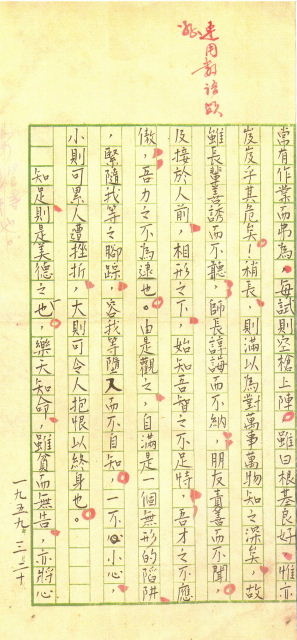 連用數語頗
常有作業而弗為，每試則空槍上陣，雖曰根基良好，惟亦
岌岌乎其危矣！稍長，則滿以為對萬事萬物知之深矣，故
雖長輩善誘而不聽，師長諄誨而不納，朋友責善而不聞，
及接於人前，相形之下，始知吾智之不足恃，吾才之不應
傲，吾力之不為遠也。由是觀之，自滿是一個無形的陷阱
，緊隨我等之腳踝，容我等墮入而不自知，一不小心，
小則可累人遭挫折，大則可令人抱恨以終身也。
知足則是美德之也，樂天知命，雖貧而無告，亦將心
一九五九、三、三十